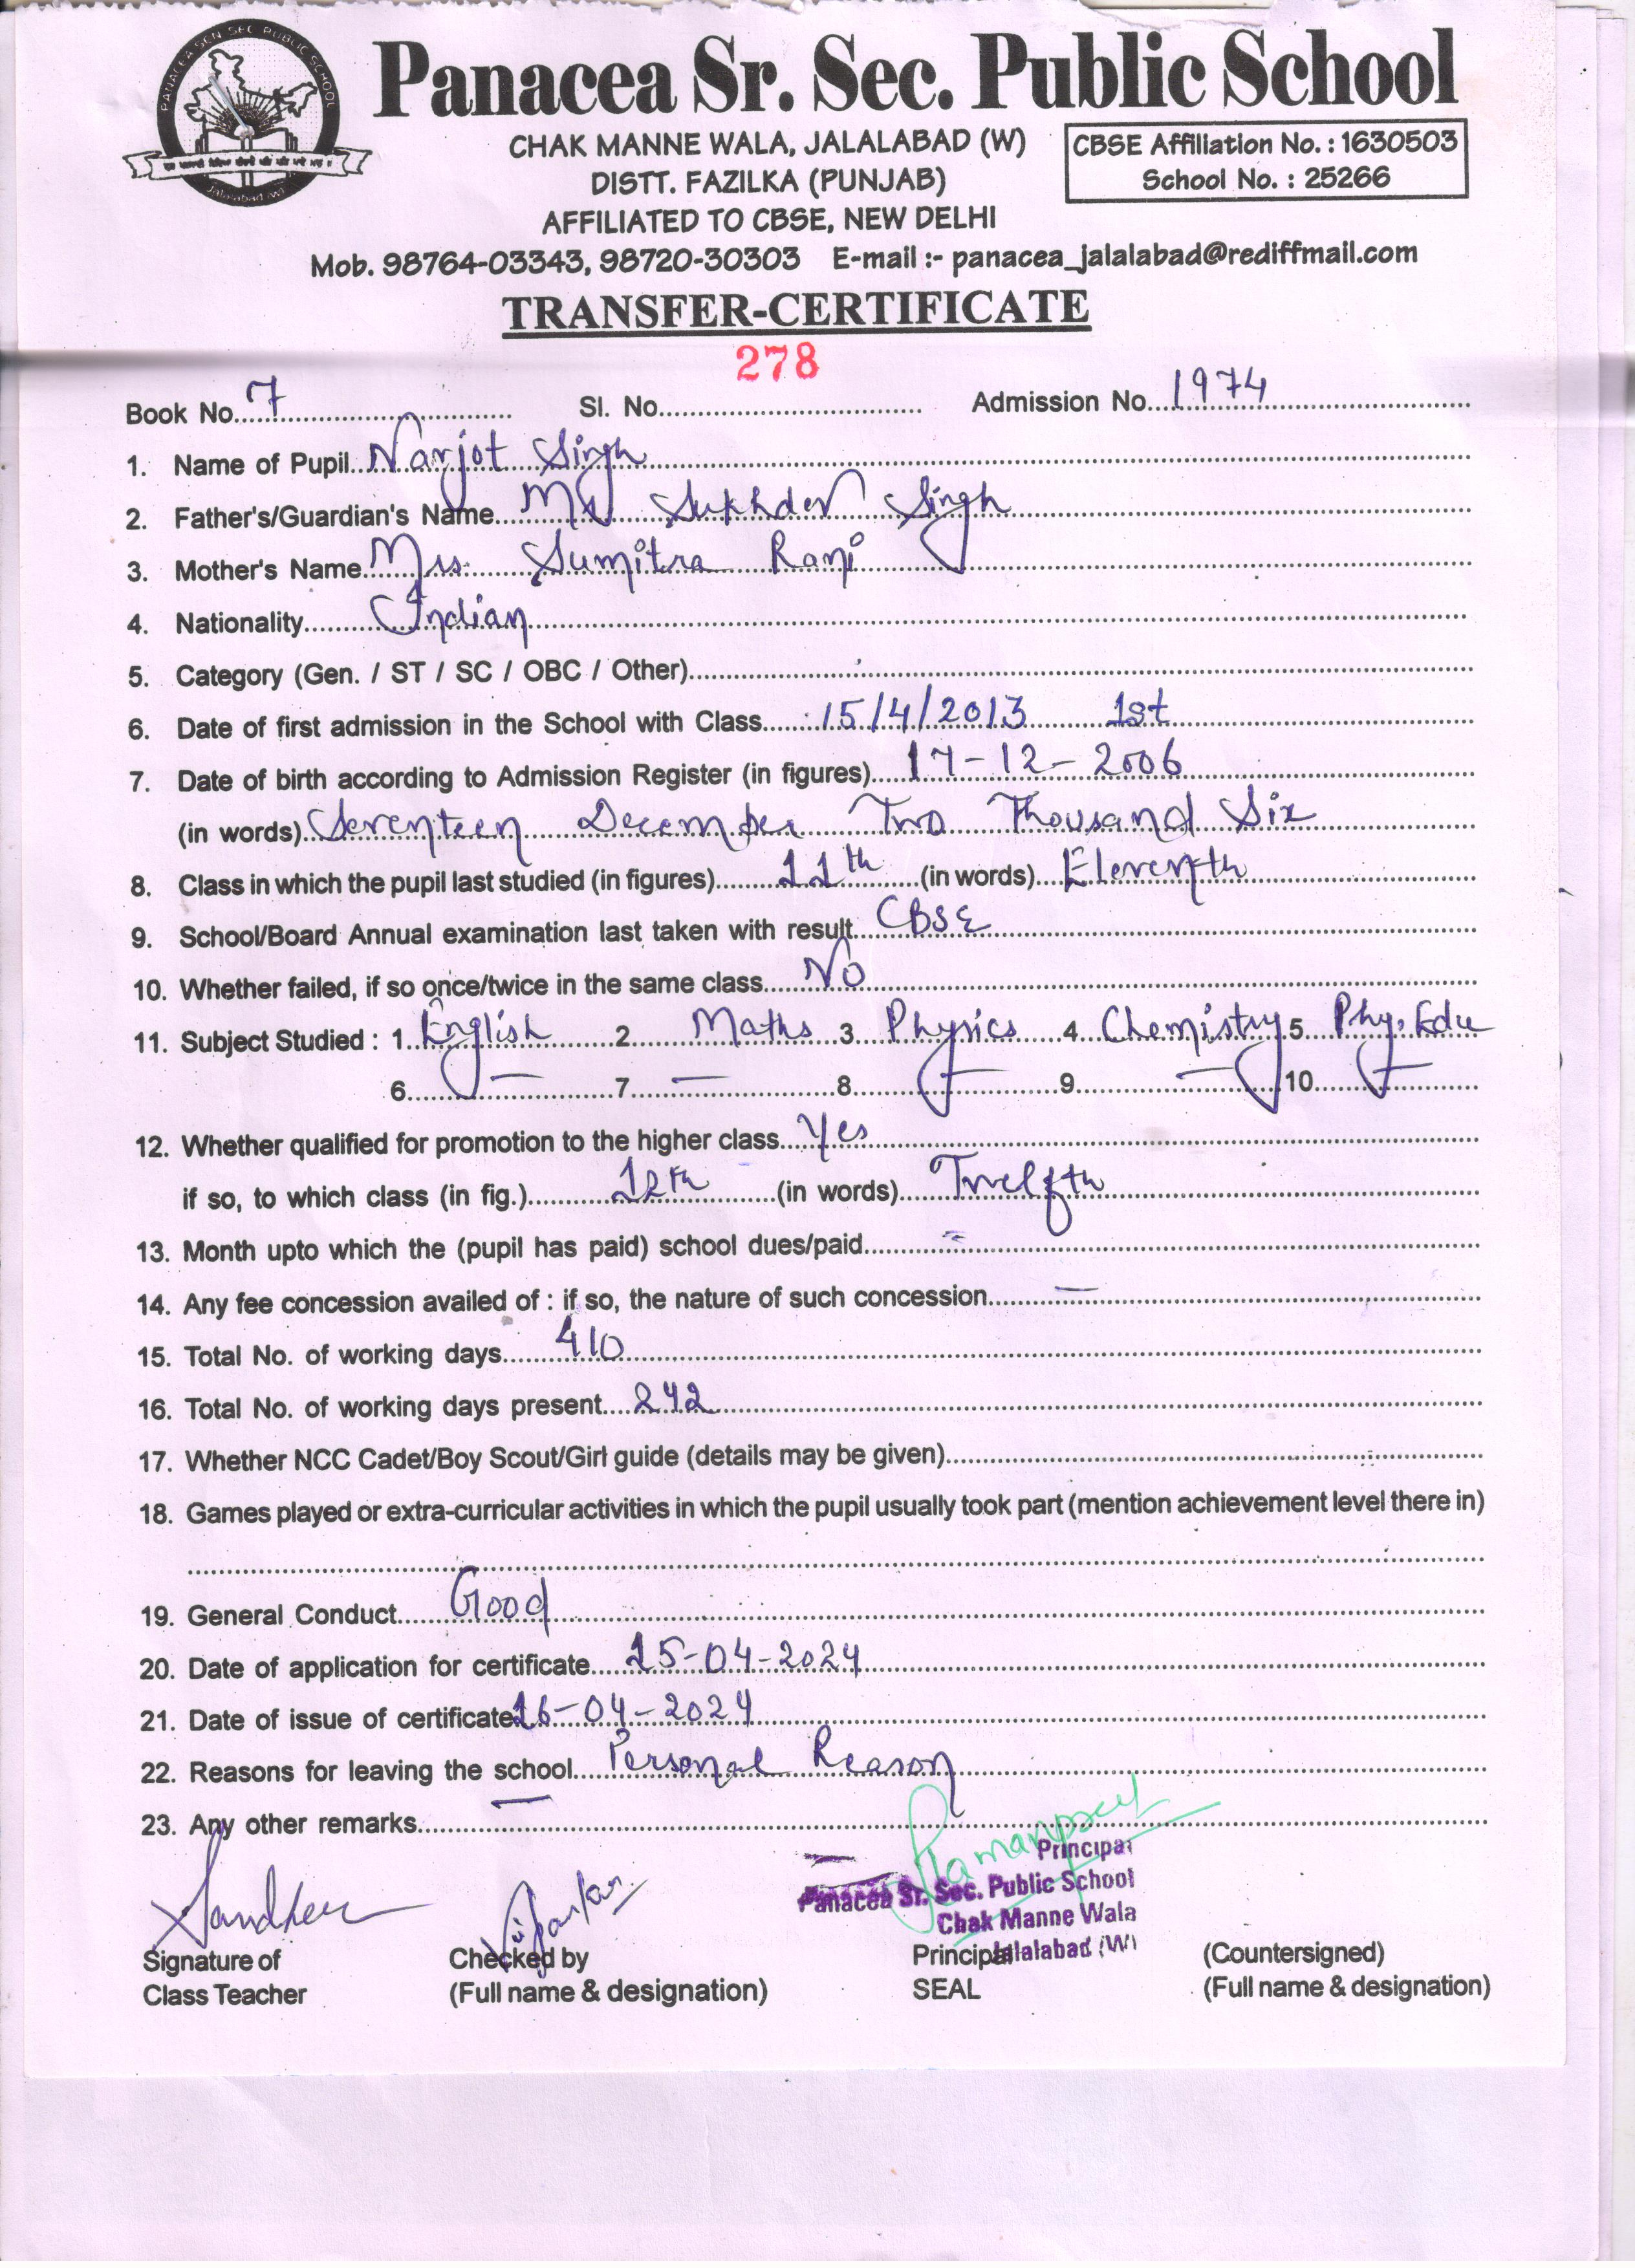 PANACEA SEN SEC PUBLIC SCHOOL
Jalalabad (W)
Panacea Sr. Sec. Public School
CHAK MANNE WALA, JALALABAD (W)
DISTT. FAZILKA (PUNJAB)
AFFILIATED TO CBSE, NEW DELHI
CBSE Affiliation No. : 1630503
School No. : 25266
Mob. 98764-03343, 98720-30303 E-mail :- panacea_jalalabad@rediffmail.com
TRANSFER-CERTIFICATE
278
Book No. 7 Sl. No. Admission No. 1974
1. Name of Pupil Navjot Singh
2. Father's/Guardian's Name Mr Sukhdev Singh
3. Mother's Name Mrs. Sumitra Rani
4. Nationality Indian
5. Category (Gen. / ST / SC / OBC / Other)
6. Date of first admission in the School with Class 15/4/2013 1st
7. Date of birth according to Admission Register (in figures) 17-12-2006
(in words) Seventeen December Two Thousand Six
8. Class in which the pupil last studied (in figures) 11th (in words) Eleventh
9. School/Board Annual examination last taken with result CBSE
10. Whether failed, if so once/twice in the same class No
11. Subject Studied : 1. English 2. Maths 3. Physics 4. Chemistry 5. Phy. Edu
6. — 7. — 8. — 9. — 10. —
12. Whether qualified for promotion to the higher class Yes
if so, to which class (in fig.) 12th (in words) Twelfth
13. Month upto which the (pupil has paid) school dues/paid
14. Any fee concession availed of : if so, the nature of such concession —
15. Total No. of working days 410
16. Total No. of working days present 242
17. Whether NCC Cadet/Boy Scout/Girl guide (details may be given)
18. Games played or extra-curricular activities in which the pupil usually took part (mention achievement level there in)
19. General Conduct Good
20. Date of application for certificate 15-04-2024
21. Date of issue of certificate 16-04-2024
22. Reasons for leaving the school Personal Reason
23. Any other remarks —
Principal
Panacea Sr. Sec. Public School
Chak Manne Wala
Jalalabad (W)
Signature of Checked by Principal (Countersigned)
Class Teacher (Full name & designation) SEAL (Full name & designation)